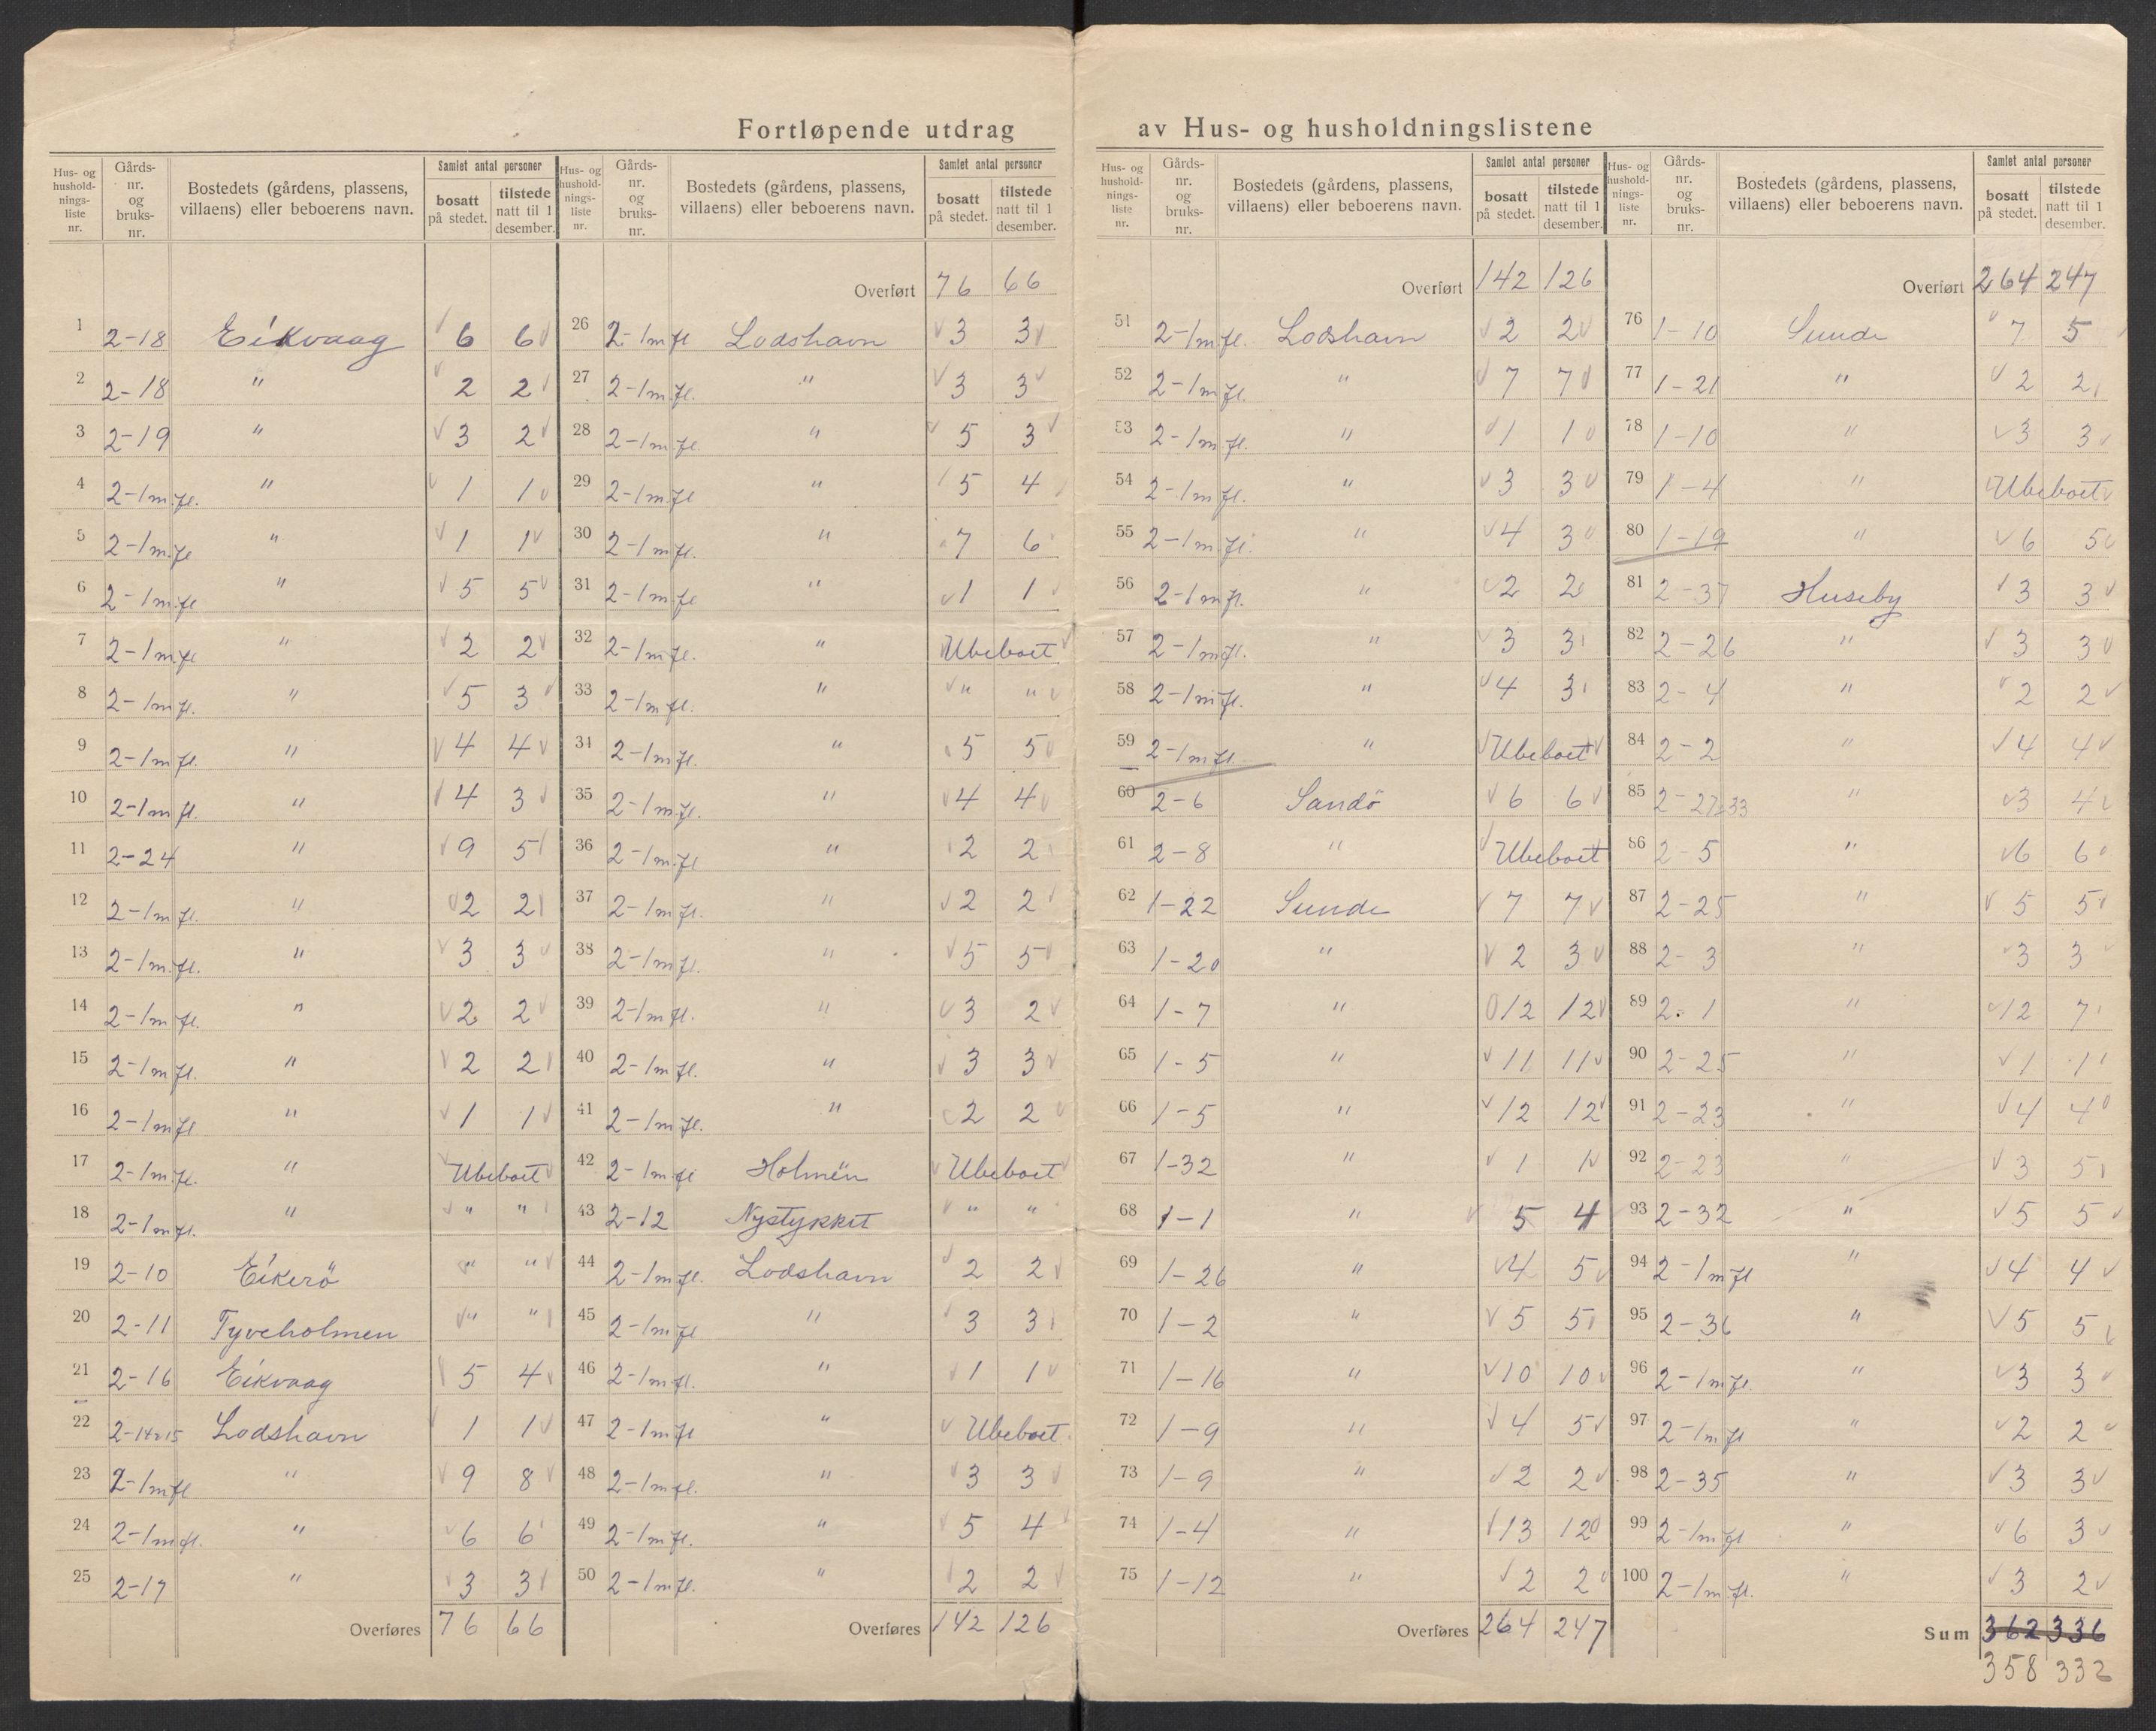 Fortløpende utdrag av Hus- og husholdningslistene
Hus- og husholdnings-liste nr. | Gårds-nr. og bruks-nr. | Bostedets (gårdens, plassens, villaens) eller beboerens navn. | Samlet antal personer bosatt på stedet. | tilstede natt til 1 desember.
1 2-18 Eikvaag 6 6
2 2-18 " 2 2
3 2-19 " 3 2
4 2-1 m.fl. " 1 1
5 2-1 m.fl " 1 1
6 2-1 m.fl " 5 5
7 2-1 m.fl " 2 2
8 2-1 m fl. " 5 3
9 2-1 m fl. " 4 4
10 2-1 m fl. " 4 3
11 2-24 " 9 5
12 2-1 m fl. " 2 2
13 2-1 m.fl. " 3 3
14 2-1 m fl. " 2 2
15 2-1 m fl. " 2 2
16 2-1 m fl " 1 1
17 2-1 m.fl. " Ubeboet
18 2-1 m fl. " " "
19 2-10 Eikerö " "
20 2-11 Tyveholmen " "
21 2-16 Eikvaag 5 4
22 2-14 15 Lodshavn 1 1
23 2-1 m fl " 9 8
24 2-1 m fl. " 6 6
25 2-17 " 3 3
Overføres 76 66
Hus- og husholdnings-liste nr. | Gårds-nr. og bruks-nr. | Bostedets (gårdens, plassens, villaens) eller beboerens navn. | Samlet antal personer bosatt på stedet. | tilstede natt til 1 desember.
Overført 76 66
26 2-1 m fl Lodshavn 3 3
27 2-1 m.fl. " 3 3
28 2-1 m.fl. " 5 3
29 2-1 m.fl " 5 4
30 2-1 m fl. " 7 6
31 2-1 m fl " 1 1
32 2-1 m fl. " Ubeboet
33 2-1 m fl. " " "
34 2-1 m fl. " 5 5
35 2-1 m.fl. " 4 4
36 2-1 m.fl " 2 2
37 2-1 m fl. " 2 2
38 2-1 m fl. " 5 5
39 2-1 m fl. " 3 2
40 2-1 m fl. " 3 3
41 2-1 m.fl. " 2 2
42 2-1 m fl Holmen Ubeboet
43 2-12 Nystykket " "
44 2-1 m fl. Lodshavn 2 2
45 2-1 m fl " 3 3
46 2-1 m fl. " 1 1
47 2-1 m fl " Ubeboet
48 2-1 m fl. " 3 3
49 2-1 m fl. " 5 4
50 2-1 m fl. " 2 2
Overføres 142 126
Hus- og husholdnings-liste nr. | Gårds-nr. og bruks-nr. | Bostedets (gårdens, plassens, villaens) eller beboerens navn. | Samlet antal personer bosatt på stedet. | tilstede natt til 1 desember.
Overført 142 126
51 2-1 m fl. Lodshavn 2 2
52 2-1 m fl. " 7 7
53 2-1 m.fl. " 1 1
54 2-1 m fl. " 3 3
55 2-1 m fl. " 4 3
56 2-1 m fl. " 2 2
57 2-1 m fl. " 3 3
58 2-1 m fl. " 4 3
59 2-1 m fl. " Ubeboet
60 2-6 Sandö 6 6
61 2-8 " Ubeboet
62 1-22 Sunde 7 7
63 1-20 " 2 3
64 1-7 " 12 12
65 1-5 " 11 11
66 1-5 " 12 12
67 1-32 " 1 1
68 1-1 " 5 4
69 1-26 " 4 5
70 1-2 " 5 5
71 1-16 " 10 10
72 1-9 " 4 5
73 1-9 " 2 2
74 1-4 " 13 12
75 1-12 " 2 2
Overføres 264 247
Hus- og husholdnings-liste nr. | Gårds-nr. og bruks-nr. | Bostedets (gårdens, plassens, villaens) eller beboerens navn. | Samlet antal personer bosatt på stedet. | tilstede natt til 1 desember.
Overført 264 247
76 1-10 Sunde 7 5
77 1-21 " 2 2
78 1-10 " 3 3
79 1-4 " Ubeboet
80 1-19 " 6 5
81 2-37 Huseby 3 3
82 2-26 " 3 3
83 2-4 " 2 2
84 2-2 " 4 4
85 2-27 33 " 3 4
86 2-5 " 6 6
87 2-25 " 5 5
88 2-3 " 3 3
89 2-1 " 12 7
90 2-25 " 1 1
91 2-23 " 4 4
92 2-23 " 3 5
93 2-32 " 5 5
94 2-1 m fl " 4 4
95 2-36 " 5 5
96 2-1 m fl. " 3 3
97 2-1 m fl " 2 2
98 2-35 " 3 3
99 2-1 m fl " 6 3
100 2-1 m fl. " 3 2
Sum 362 336
358 332